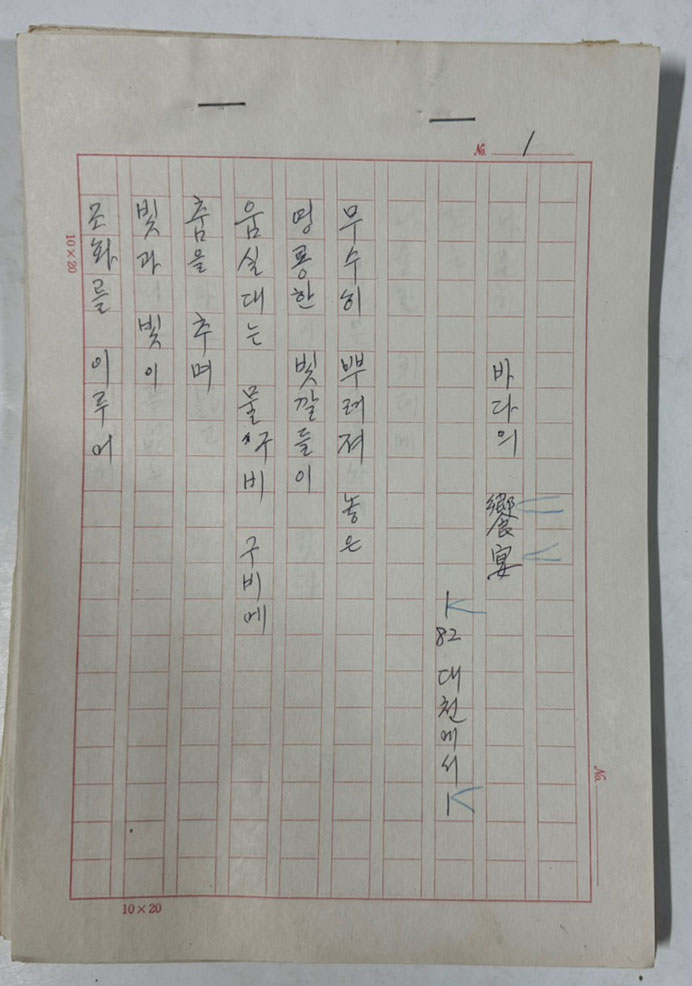 No. 1
바다의 饗宴
ㅣ82 대천에서ㅣ
무수히 뿌려져 놓은
영롱한 빛깔들이
움실대는 물구비 구비에
춤을 추며
빛과 빛이
조화를 이루어
10×20
10×20
No.